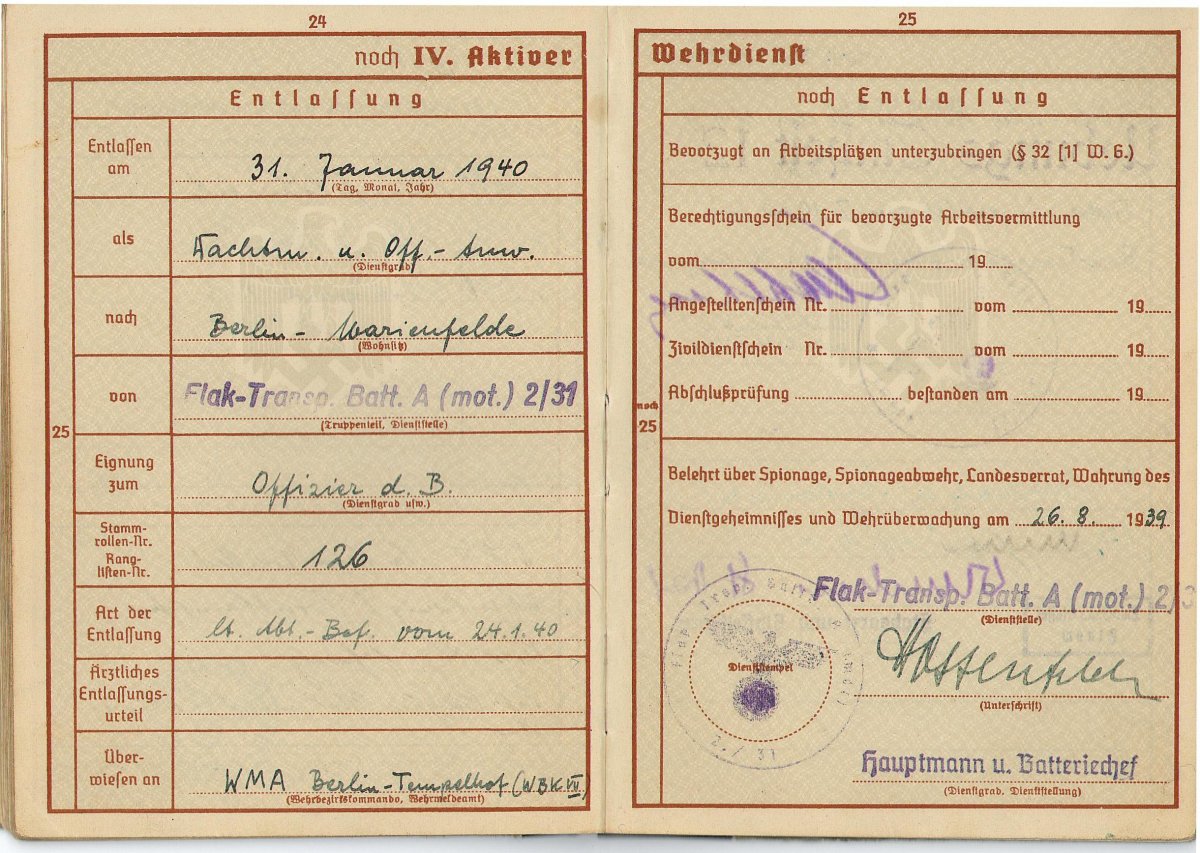 24
noch IV. Aktiver
Entlassung
25
Entlassen am
31. Januar 1940
(Tag, Monat, Jahr)
als
Wachtm. u. Off.-Anw.
(Dienstgrad)
nach
Berlin-Marienfelde
(Wohnsitz)
von
Flak-Transp. Batt. A (mot.) 2/31
(Truppenteil, Dienststelle)
Eignung zum
Offizier d. B.
(Dienstgrad usw.)
Stamm-
rollen-Nr.
Rang-
listen-Nr.
126
Art der
Entlassung
lt. Abt.-Bef. vom 24.1.40
Ärztliches
Entlassungs-
urteil
Über-
wiesen an
WMA Berlin-Tempelhof (WBK VII)
(Wehrbezirkskommando, Wehrmeldeamt)
25
Wehrdienst
noch Entlassung
Bevorzugt an Arbeitsplätzen unterzubringen (§ 32 [1] W. G.)
Berechtigungsschein für bevorzugte Arbeitsvermittlung
vom 19
Angestelltenschein Nr. vom 19
Zivildienstschein Nr. vom 19
Abschlußprüfung bestanden am 19
noch
25
Belehrt über Spionage, Spionageabwehr, Landesverrat, Wahrung des
Dienstgeheimnisses und Wehrüberwachung am 26. 8. 1939
Flak-Transp. Batt. A (mot.) 2/3
(Dienststelle)
Dienststempel
2. / 31
(Unterschrift)
Hauptmann u. Batteriechef
(Dienstgrad, Dienststellung)